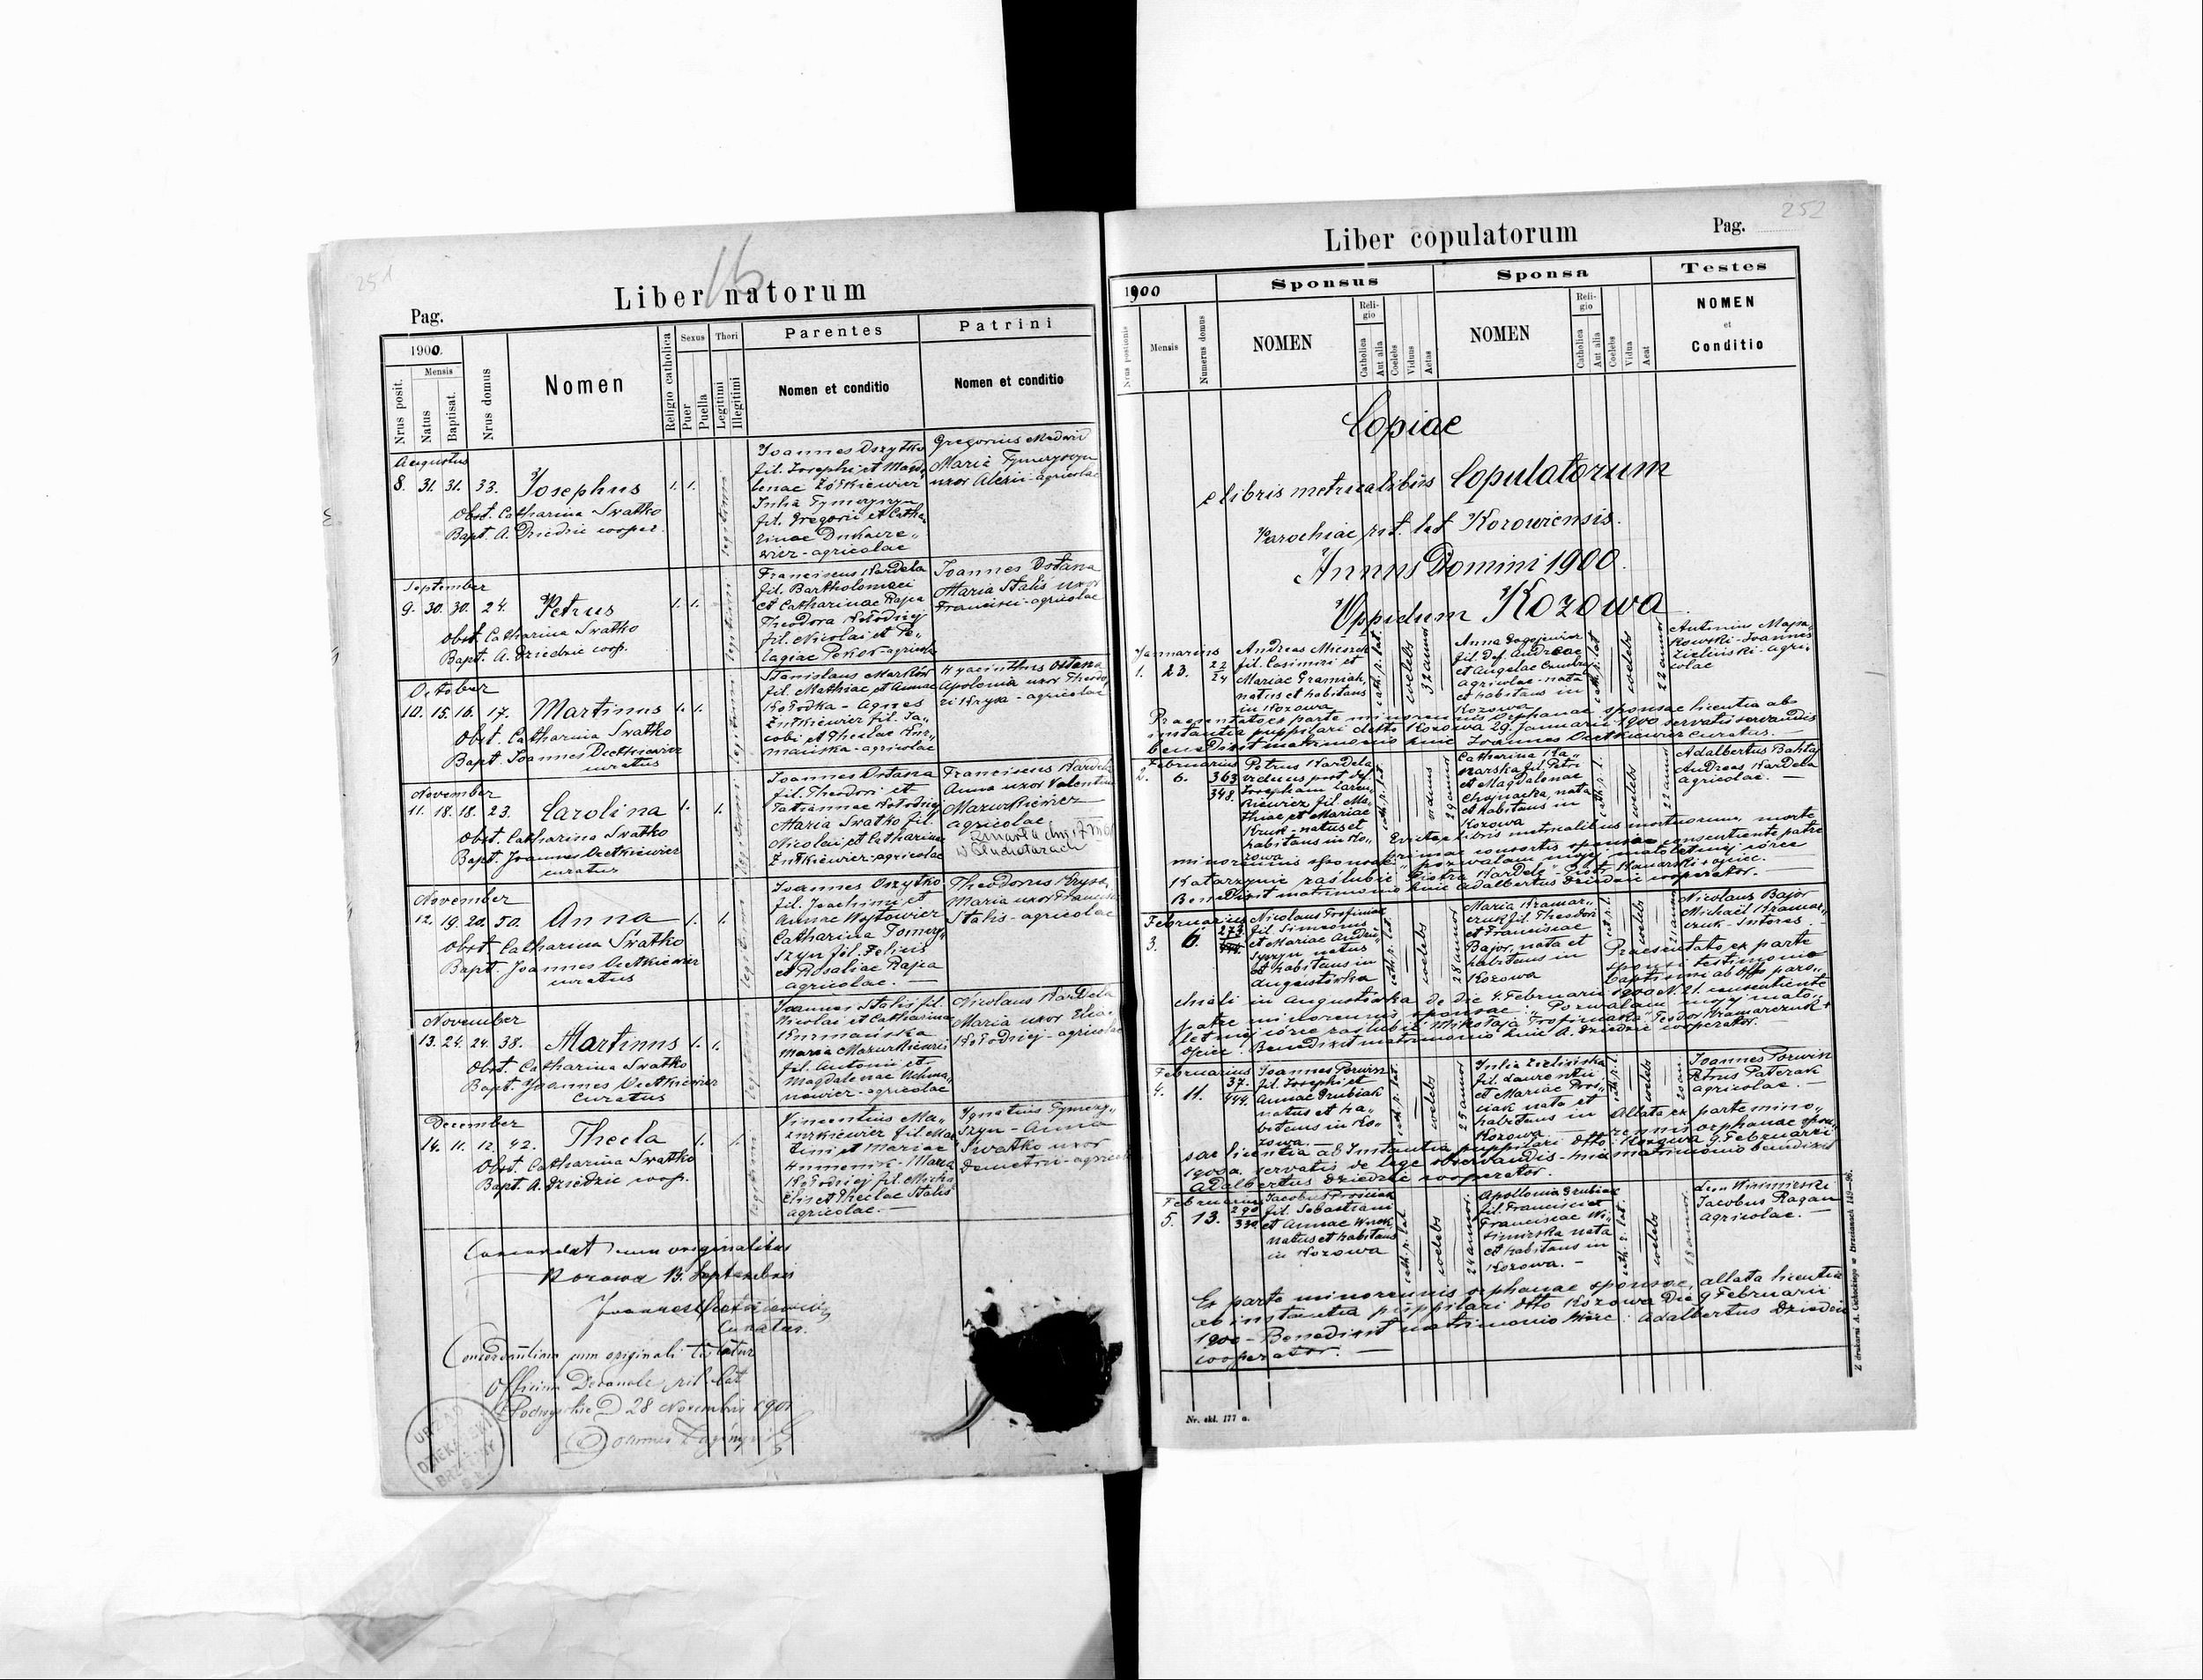 251
16
Liber natorum
Pag.
1900.
Nrus posit.
Mensis
Natus
Baptisat.
Nrus domus
Nomen
Religio catholica
Sexus
Puer
Puella
Thori
Legitimi
Illegitimi
Parentes
Nomen et conditio
Patrini
Nomen et conditio
Augustus
8. 31. 31. 33. Josephus 1. 1.
Obst. Catharina Swatko
Bapt. A. Dziedzic cooper.
legitimi
Joannes Oszytko
fil. Josephi et Magda-
lenae Żółkiewicz
Julia Tymczyszyn
fil. Gregorii et Catha-
rinae
agricolae
Gregorius
Maria Tymczyszyn
uxor Alexii - agricolae
September
9. 30. 30. 24. Petrus 1. 1.
Obst. Catharina Swatko
Bapt. A. Dziedzic coop.
legitimi
Franciscus Kardela
fil. Bartholomaei
et Catharinae Rajca
Theodora Kołodziej
fil. Nicolai et Pe-
lagiae Pekor - agricolae
Joannes Ostana
Maria Stalis uxor
Francisci - agricolae
October
10. 15. 16. 17. Martinus 1. 1.
Obst. Catharina Swatko
Bapt. Joannes Dietkiewicz
curatus
legitimi
Stanislaus Markow
fil. Mathiae et Annae
Kołodka - Agnes
Żułkiewicz fil. Ja-
cobi et Theclae
agricolae
Hyacinthus Ostana
Apolonia uxor Theodo
ri Krysa - agricolae
November
11. 18. 18. 23. Carolina 1. 1.
Obst. Catharina Swatko
Bapt. Joannes Dietkiewicz
curatus
legitimi
Joannes Ostana
fil. Theodori et
Tatiannae Kołodziej
Maria Swatko fil.
Nicolai et Catharinae
Żułkiewicz - agricolae
Franciscus Kardela
Anna uxor Valentini
Mazurkiewicz
agricolae
zmarła
November
12. 19. 20. 50. Anna 1. 1.
Obst. Catharina Swatko
Bapt. Joannes Dietkiewicz
curatus
legitimi
Joannes Oszytko
fil. Joachimi et
Annae Wojtowicz
Catharina Tomczy-
szyn fil. Felicis
et Rosaliae Rajca
agricolae. —
Theodorus Krysa
Maria uxor Francisci
Stalis - agricolae
November
13. 24. 24. 38. Martinus 1. 1.
Obst. Catharina Swatko
Bapt. Joannes Dietkiewicz
curatus
legitimi
Joannes Stalis fil.
Nicolai et Catharinae
Maria Mazurkiewicz
fil. Antonii et
Magdalenae
agricolae
Nicolaus Kardela
Maria uxor Eliae
Kołodziej - agricolae
December
14. 11. 12. 42. Thecla 1. 1.
Obst. Catharina Swatko
Bapt. A. Dziedzic coop.
legitimi
Vincentius Ma-
zurkiewicz fil. Mar
tini et Mariae
Humeniuk - Maria
Kołodziej fil. Micha
elis et Theclae Stalis
agricolae. —
Ignatius Tymczy-
szyn - Anna
Swatko uxor
Demetrii - agricolae
Concordat cum originalibus
Kozowa 13. Septembris
Joannes Dietkiewicz
Curatus.
Concordantiam cum originali
Officium Decanale rit. lat
D 28 Novembris 1901
URZĄD
DZIEKAŃSKI
252
Liber copulatorum
Pag.
1900
Nrus positionis
Mensis
Numerus domus
Sponsus
NOMEN
Religio
Catholica
Aut alia
Coelebs
Viduus
Aetas
Sponsa
NOMEN
Religio
Catholica
Aut alia
Coelebs
Vidua
Aeat
Testes
NOMEN
et
Conditio
Copiae
e libris metricalibus Copulatorum
Parochiae rit. lat Kozoviensis.
Annus Domini 1900.
Oppidum Kozowa
Januarius
1. 23.
Andreas
fil. Casimiri et
Mariae Gramiak
natus et habitans
in Kozowa
cath. r. lat
coelebs
32 annor
Anna
fil. def. Andreae
et Angelae
agricolae - nata
et habitans in
Kozowa
cath. r. lat
coelebs
22 annor
Antonius Maja-
kowski - Joannes
Zieliński - agri-
colae
Praesentato ex parte minorennis orphanae sponsae licentia ab
instantia puppilari dtto Kozowa 29. Januarii 1900 servatis servandis
benedixit matrimonio huic Joannes Dietkiewicz curatus. —
Februarius
2. 6. 363
348.
Petrus Kardela
viduus post def.
Josepham
fil. Ma-
thiae et Mariae
Kruk - natus et
habitans in Ko-
zowa
cath. r. lat.
viduus
29 annor
Catharina Ka-
narska fil. Petri
et Magdalenae
Chojnacka, nata
et habitans in
Kozowa
cath. r. l.
coelebs
22 annor
Adalbertus Bahta
Andreas Kardela
agricolae. —
libris metricalibus mortuorum, morte
primae consortis sponsi consentiente patre
minorennis sponsae: „pozwalam mojej małoletniej córce
Katarzynie zaślubić Piotra Kardelę" Piotr Kanarski + ojciec. —
Benedixit matrimonio huic Adalbertus Dziedzic cooperator. —
Februarius
3. 6. 273
Nicolaus Trofimiak
fil. Simeonis
et Mariae Andru-
szyszyn natus
et habitans in
Augustówka
cath. r. lat.
coelebs
28 annor
Maria Kramar-
czuk fil. Theodori
et Franciscae
Bajor, nata et
habitans in
Kozowa
cath. r. l.
coelebs
21 annor
Nicolaus Bajor
Michael Kramar-
czuk - sutores.
Praesentato ex parte
sponsi testimonio
baptismi ab offo paro-
chiali in Augustówka de die 4. Februarii 1900 N. 21. consentiente
patre minorennis sponsae: „Pozwalam mojej mało-
letniej córce zaślubić Mikołaja Trofimiaka" Teodor Kramarczuk +
ojciec. Benedixit matrimonio huic A. Dziedzic cooperator. —
Februarius
4. 11. 37.
444.
Joannes Porwisz
fil. Josephi et
Annae Grubiak
natus et ha-
bitans in Ko-
zowa. —
cath. r. lat.
coelebs
25 annor
Julia Zielińska
fil. Laurentii
et Mariae Pros-
ciak nata et
habitans in
Kozowa —
cath. r. l.
coelebs
20 an.
Joannes Porwisz
Petrus Paterak
agricolae. —
Allata ex parte mino-
rennis orphanae spon-
sae licentia ab Instantia puppilari dtto. Kozowa 9. Februarii
1900 a. servatis de lege observandis - huic matrimonio benedixit
Adalbertus Dziedzic cooperator.
Februarius
5. 13. 290
330.
Jacobus Prosciak
fil. Sebastiani
et Annae Wnuk,
natus et habitans
in Kozowa
cath. r. lat.
coelebs
24 annor.
Apollonia Grubiak
fil. Francisci et
Franciscae Wi-
śnirska nata
et habitans in
Kozowa. —
cath. r. lat.
coelebs
18 annor.
Jacobus Ragan
agricolae. —
Ex parte minorennis orphanae sponsae, allata licentia
ab instantia puppilari dtto Kozowa die 9 Februarii
1900 - Benedixit matrimonio huic: Adalbertus Dziedzic
cooperator. —
Nr. skł. 177 a.
Z drukarni A. Cichockiego w Brzeżanach 149—96.